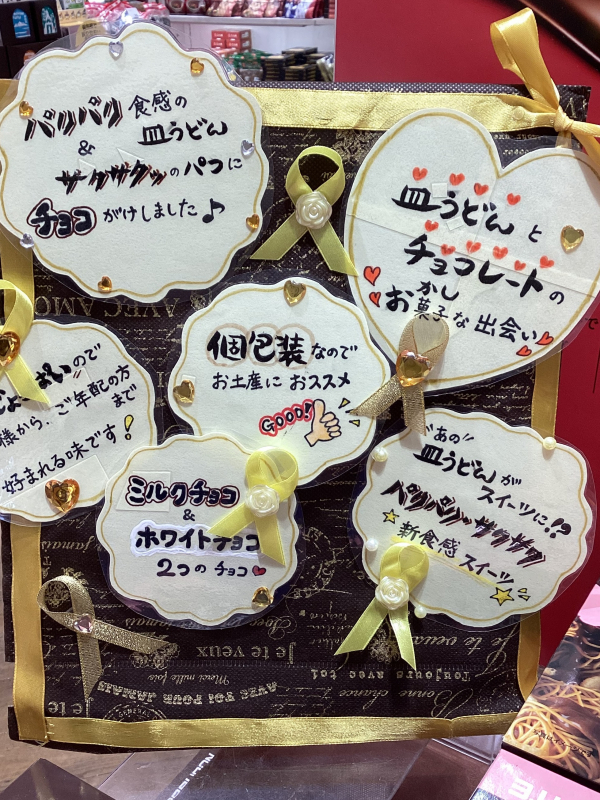 パリパリ 食感の
皿うどん
&
サクサクッのパフに
チョコ がけしました♪
皿うどん と
チョコレートの
お菓子な 出会い
かし
個包装 なので
お土産に おススメ
GOOD!
ぱいので
様から、ご年配の方
まで
好まれる味です!
ミルクチョコ
&
ホワイトチョコ
2つの チョコ
"あの"
皿うどんが
スイーツに!?
パリパリ・サクサク
新食感 スイーツ
AVEC AMO
Je te veux
Je te veux
Toujours avec toi
Bonne chance
Merci mille fois
AVEC TOI POUR JAMAIS